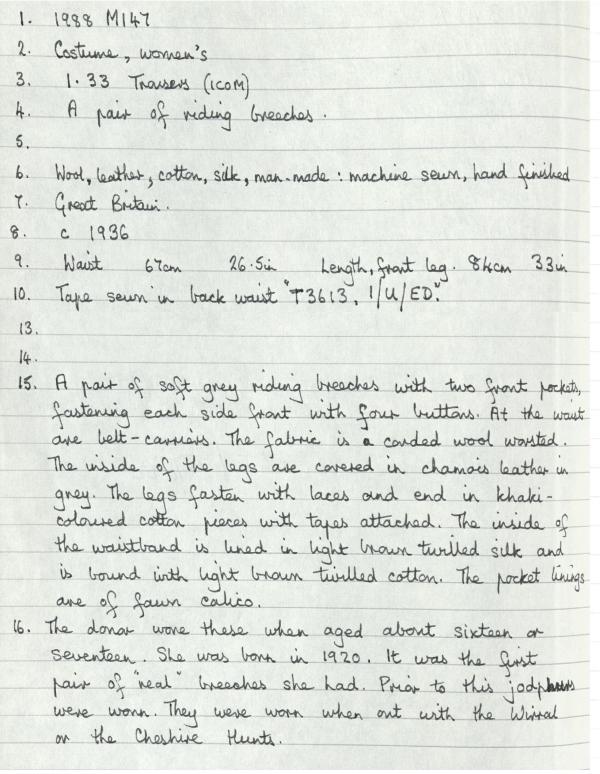 1. 1988 M147
2. Costume, women's
3. 1.33 Trousers (ICOM)
4. A pair of riding breeches.
5.
6. Wool, leather, cotton, silk, man-made : machine sewn, hand finished
7. Great Britain.
8. c 1936
9. Waist 67cm 26.5in Length, front leg. 84cm 33in
10. Tape sewn in back waist "T3613, 1/U/ED".
13.
14.
15. A pair of soft grey riding breeches with two front pockets,
fastening each side front with four buttons. At the waist
are belt-carriers. The fabric is a corded wool worsted.
The inside of the legs are covered in chamois leather in
grey. The legs fasten with laces and end in khaki-
coloured cotton pieces with tapes attached. The inside of
the waistband is lined in light brown twilled silk and
is bound with light brown twilled cotton. The pocket linings
are of fawn calico.
16. The donor wore these when aged about sixteen or
seventeen. She was born in 1920. It was the first
pair of "real" breeches she had. Prior to this jodphurs
were worn. They were worn when out with the Wirral
or the Cheshire Hunts.